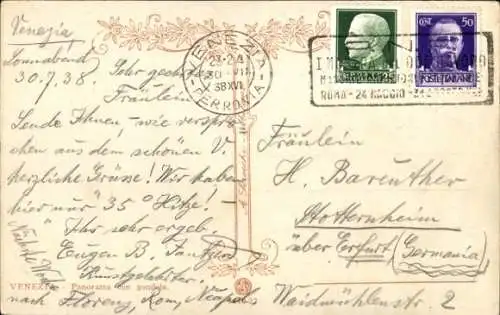 Venezia
Sonnabend
30.7.38. Sehr geehrtes
Fräulein
Sende Ihnen, wie verspro-
chen aus dem schönen V.
herzliche Grüsse! Wir haben
hier nur 35° Hitze!
Ihr sehr ergeb.
Eugen B.
Nächste Woche
nach Florenz, Rom, Neapel
VENEZIA - Panorama con gondola.
VENEZIA
FERROVIA
30 VII
38 XVI
50
POSTE ITALIANE
ROMA - 24 MAGGIO
Fräulein
H. Bareuther
Stotternheim
über Erfurt (Germania)
Waidmühlenstr. 2